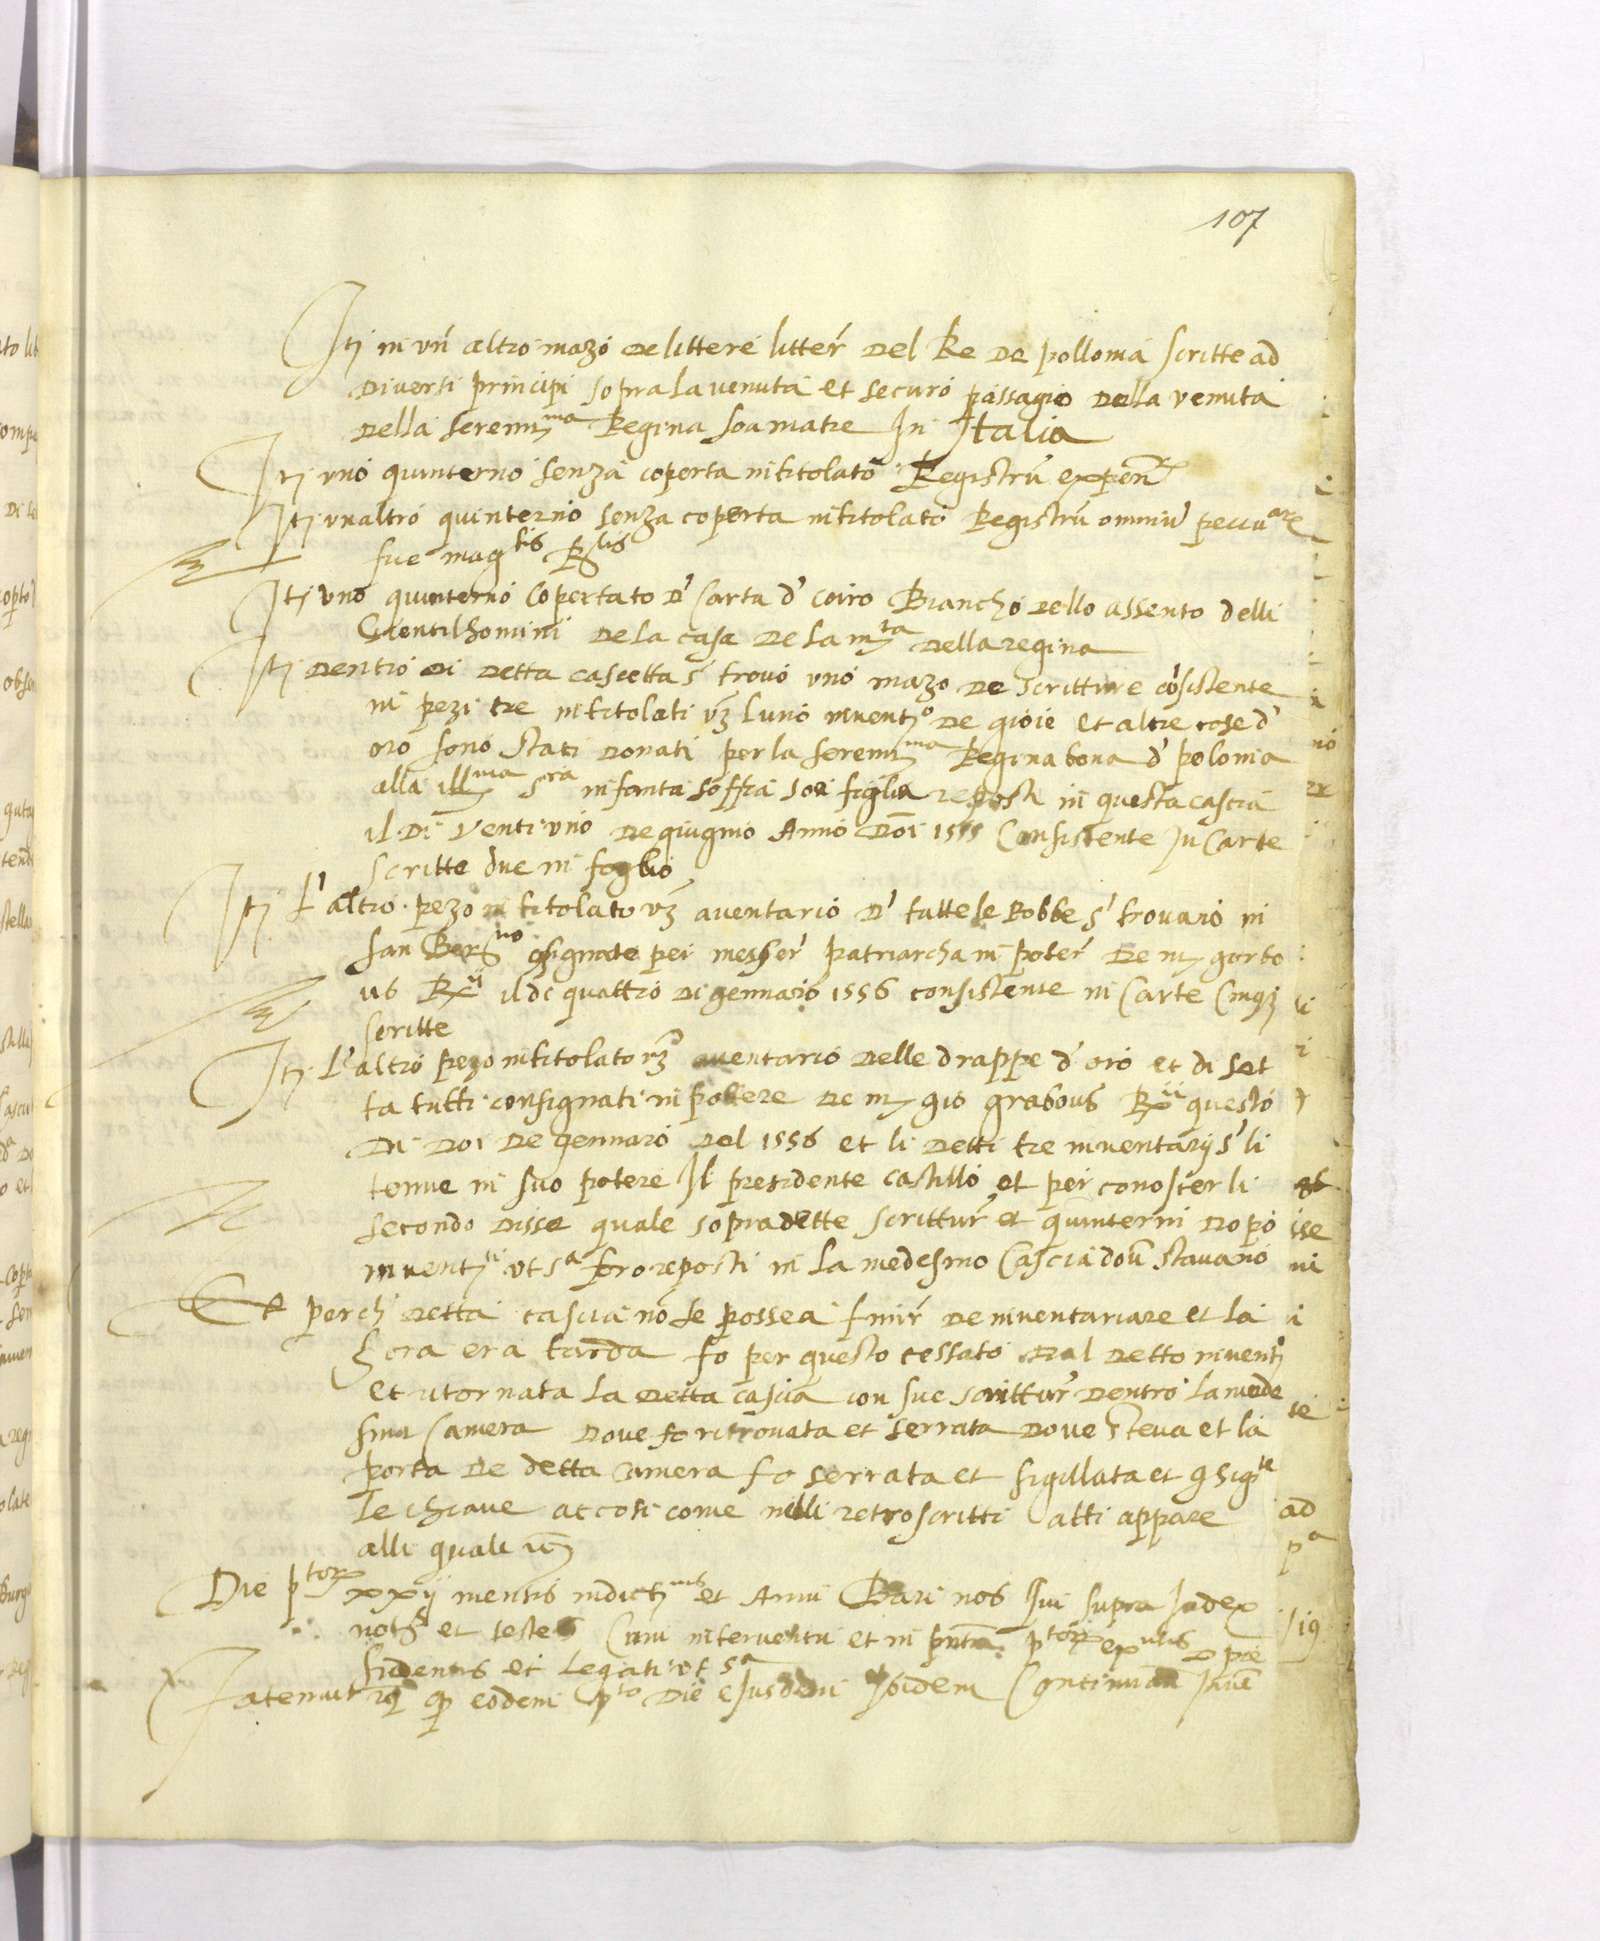 107
Itȝ in un altro mazo de littere litter del Re de pollonia scritte ad
diversi principi sopra la venuta et securo passagio della venuta
della serenma Regina soa matre In Italia
Itȝ uno quinterno senza coperta intitolato Registru expen
Itȝ unaltro quinterno senza coperta intitolato Registru omniu pecu
sue magtis Rlis
Itȝ uno quinterno copertato d' carta d' coiro Biancho dello assento delli
Gentilhomini de la casa de la mta della regina
Itȝ dentro di detta cascetta s' trovo uno mazo de scritture cosistente
in pezi tre intitolati vȝ luno inventro de gioie et altre cose d'
oro sono stati donati per la serenma Regina bona d' polonia
alla illma sra infanta soffia soa figlia reposti in questa cascia
il di ventiuno de giugnio Anno Doi 1555 consistente In Carte
scritte due in foglio
Itȝ L'altro pezo intitolato vȝ aventario d' tutte le Robbe s' trovano in
san Berno csignate per messer patriarcha in poter de mȝ gorbo
us Rxii il di quattro di gennaro 1556 consistente in Carte Cinqȝ
scritte
Itȝ L'altro pezo intitolato vȝ aventario delle drappe d'oro et di set
ta tutti consignati in potere de mȝ gio grabous Rxii questo
Di doi de gennaro del 1556 et li detti tre inventarij s' li
tenne in suo potere Il presidente castillo et per conoscerli
secondo disse quale sopradette scrittur et quinterni dopo
inventti ut sa foro reposti in la medesmo Cascia dou stavano
Et perch' detta cascia no se possea finir de inventariare et la
hora era tarda fo per questo cessato dal detto invent
et ritornata la detta cascia con sue scrittur dentro la mede
sma Camera dove fo ritrovata et serrata dove steva et la
porta de detta camera fo serrata et sigillata et csigte
le chiave ac cosi come nelli retroscritti atti appare
alli quali
Die ptor xxij mensis indictnis et Anni Bari nos Qui supra Iudex
not et testes Cum interventu et in pntia ptor
sidentis et legati ut sa
Fatemur qȝ eodem pto Die eiusdem Ibidem Continuan Inve